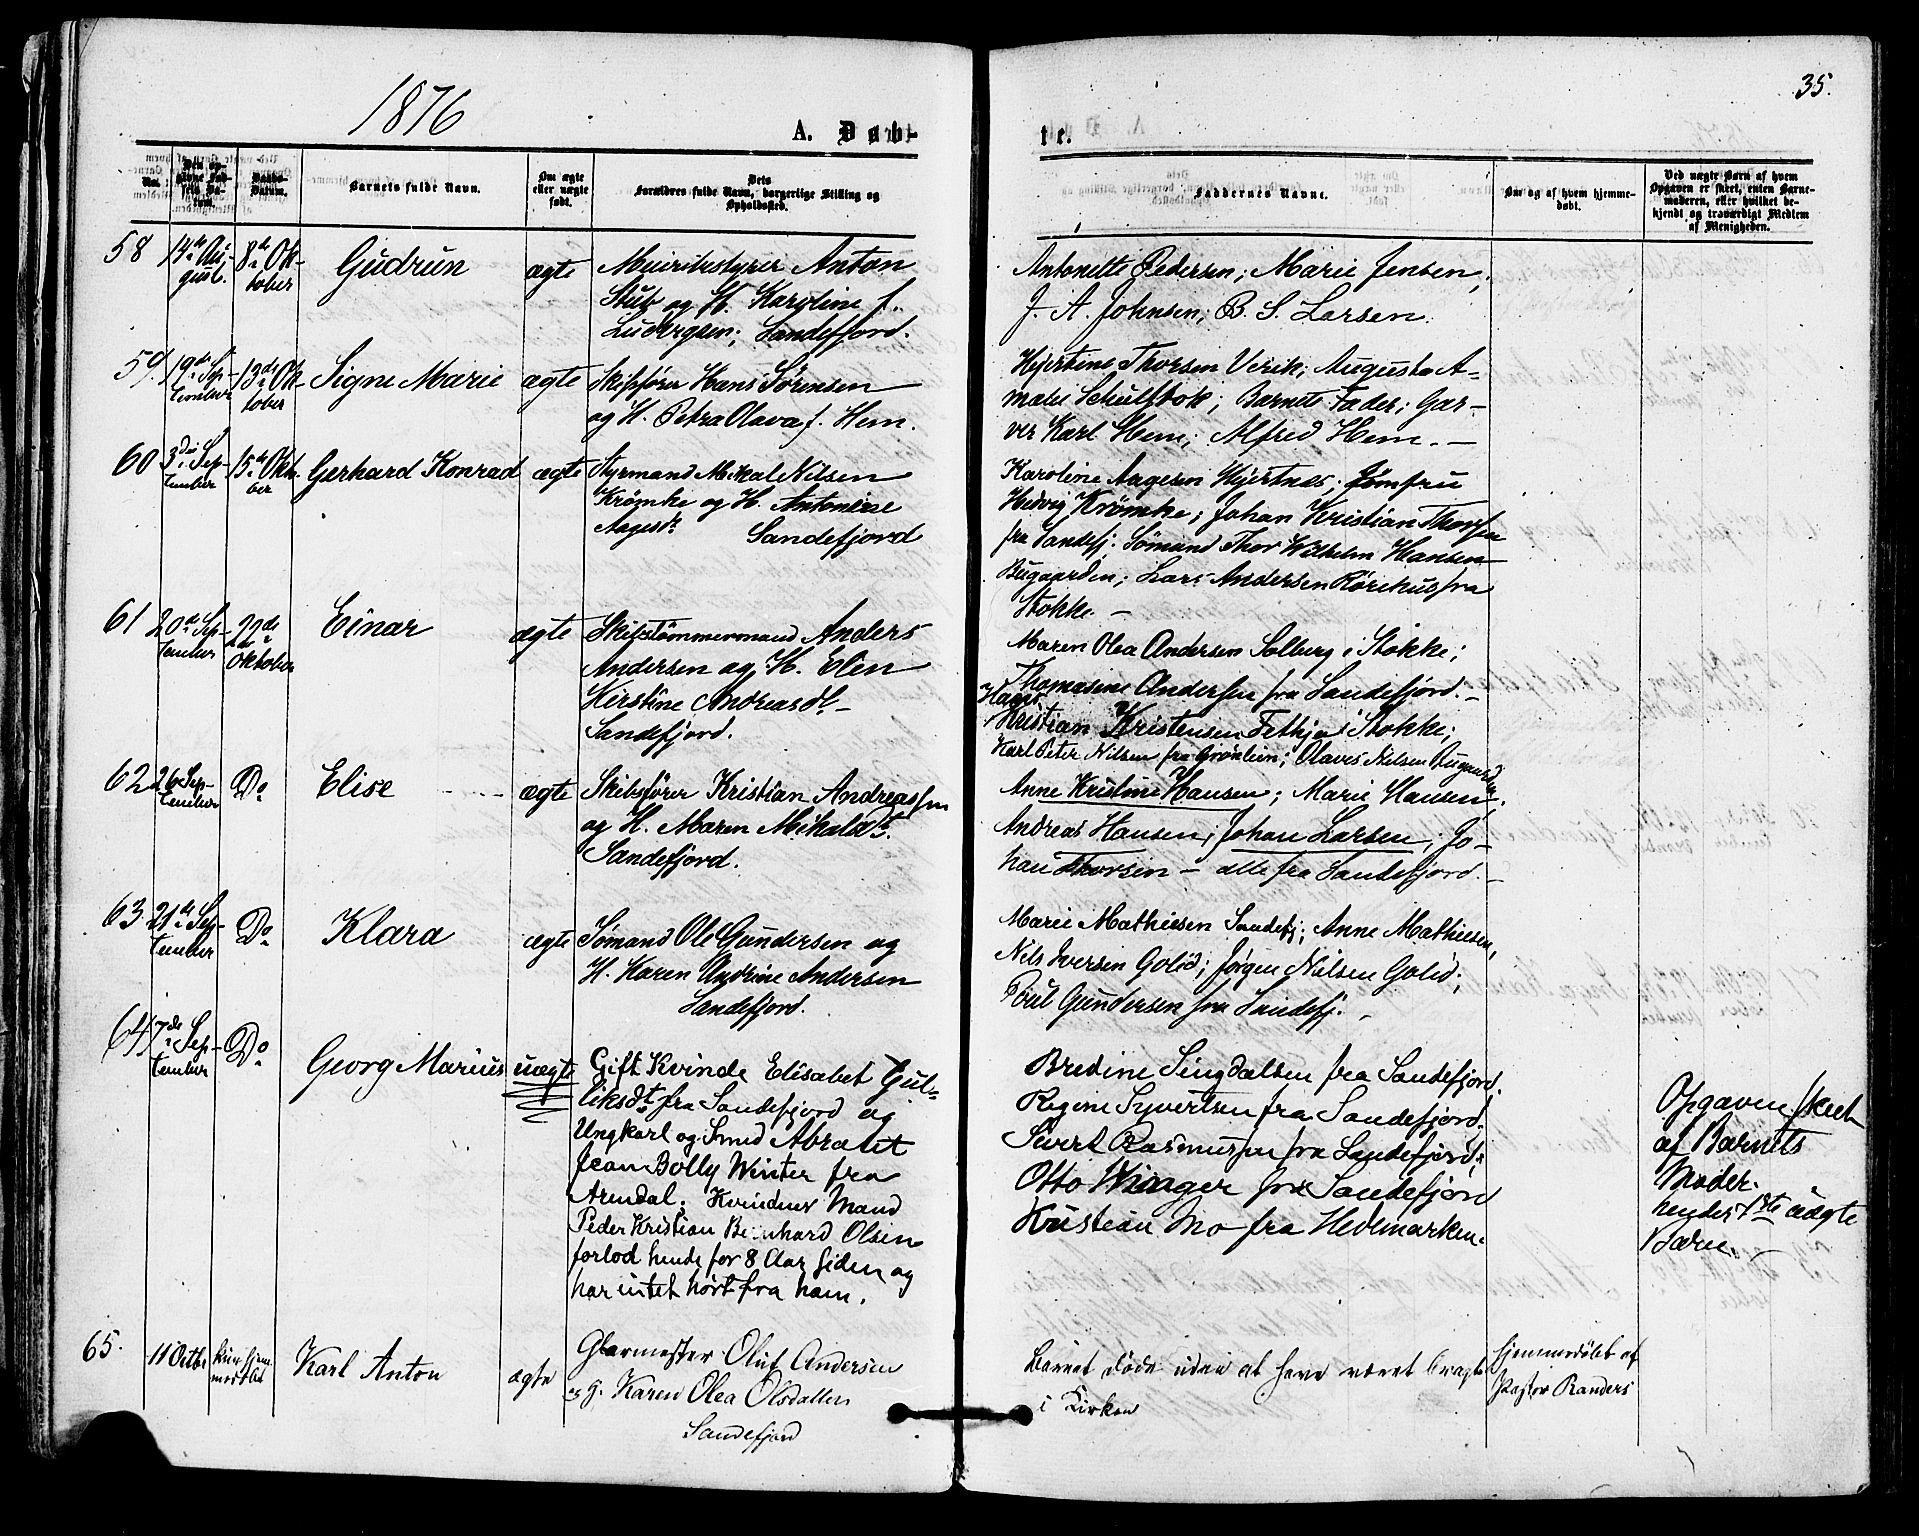 1876
35.
A. Døb-
te.
No.
Den op-
givne Fød-
sels Da-
tum.
Daabs-
Datum.
Barnets fulde Navn.
Om ægte
eller uægte
født.
Dets
Forældres fulde Navn, borgerlige Stilling og
Opholdssted.
Faddernes Navne.
Om og af hvem hjemme-
døbt.
Ved uægte Børn af hvem
Opgaven er skeet, enten Barne-
moderen, eller hvilket be-
kjendt og troværdigt Medlem
af Menigheden.
58 14de Au-
gust. 8de Ok-
tober Gudrun ægte
Anton
Stub og H. Karoline f.
Sandefjord.
Antonette Pedersen; Marie Jensen;
J. A. Johnsen; B. S. Larsen.
59. 19de Sep-
tember 13de Ok-
tober Signe Marie ægte
Skipsfører Hans Sørensen
og H. Petra Olava f. Hem.
Thorsen Verik; Augusta A-
malie; Barnets Fader; Gar-
ver Karl Hem; Alfred Hem. —
60 3die Sep-
tember 15de Okto-
ber Gerhard Konrad ægte
Styrmand Mikal Nilsen
Krømke og H.
Aagesdt. Sandefjord
Karoline Aagesen Hjertnæs; Jomfru
Hedvig Krømke; Johan Kristian Thorssen
fra Sandefj. Sømand Thor Wilhelm Hansen
Bugaarden; Lars Andersen fra
Stokke. —
61 20de Sep-
tember 22de
Oktober Einar ægte
Skibstømmermand Anders
Andersen og H. Elen
Kirstine Andreasdt. —
Sandefjord.
Maren Olea Andersen Solberg i Stokke;
Thomasine Anderssen fra Sandefjord. —
Hans
Kristian Kristensen i Stokke;
Karl Peter Nilsen fra; Olaves Nilsen
62 26 Sep-
tember Do Elise ægte
Skibsfører Kristian Andreassen
og H. Maren Mikalsdt.
Sandefjord.
Anne Kristine Hansen; Marie Hansen;
Andreas Hansen; Johan Larsen; Jo-
han Thorsen — alle fra Sandefjord. —
63 21de Sep-
tember Do Klara ægte
Sømand Ole Gundersen og
H. Karen Andrine Andersen
Sandefjord.
Marie Mathiesen Sandefj; Anne Mathiesen,
Nils Iversen Golid; Jørgen Nilsen Golid;
Poul Gundersen fra Sandefj. —
64 17de Sep-
tember Do Georg Marius uægte
Gift Kvinde Elisabet Gul-
liksdt. fra Sandefjord og
Ungkarl og Smed
Jean Bolly Winter fra
Arendal. Kvindens Mand
Peder Kristian Bernhard Olsen
forlod hende for 8 Aar siden og
har intet hørt fra ham.
Bredine fra Sandefjord.
Regine Syvertsen fra Sandefjord.
Sivert Rasmussen fra Sandefjord.
Otto Winger fra Sandefjord
Kristian Mo fra Hedemarken.
Opgaven skeet
af Barnets
Moder.
hendes 1ste uægte
Barn.
65. 11 Octbr kun hjem-
medøbt Karl Anton ægte
Glarmester Oluf Andersen
og H. Karen Olea Olsdatter
Sandefjord
Barnet døde uden at have været bragt
i Kirken
Hjemmedøbt af
Pastor Randers